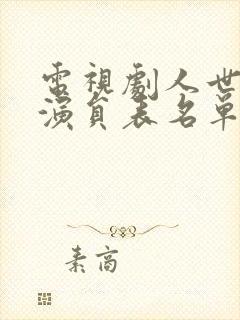 電視劇人世
演員表名單
素高